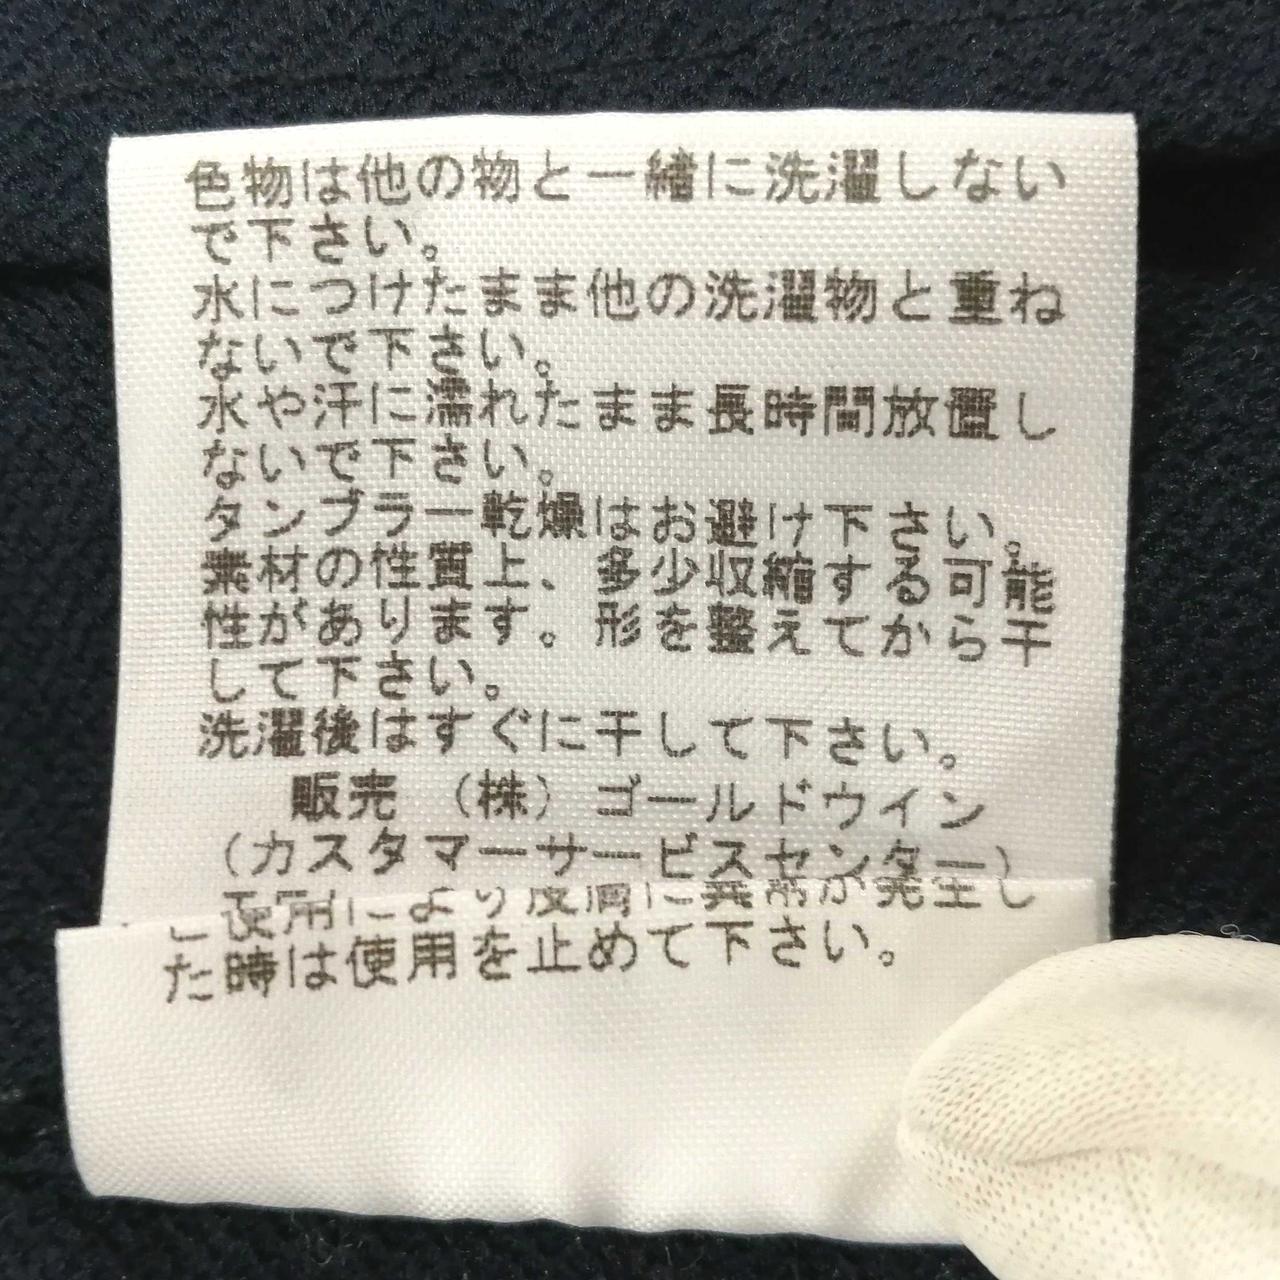 色物は他の物と一緒に洗濯しない
で下さい。
水につけたまま他の洗濯物と重ね
ないで下さい。
水や汗に濡れたまま長時間放置し
ないで下さい。
タンブラー乾燥はお避け下さい。
素材の性質上、多少収縮する可能
性があります。形を整えてから干
して下さい。
洗濯後はすぐに干して下さい。
販売 （株）ゴールドウイン
（カスタマーサービスセンター）
使用により皮膚に異常が発生し
た時は使用を止めて下さい。